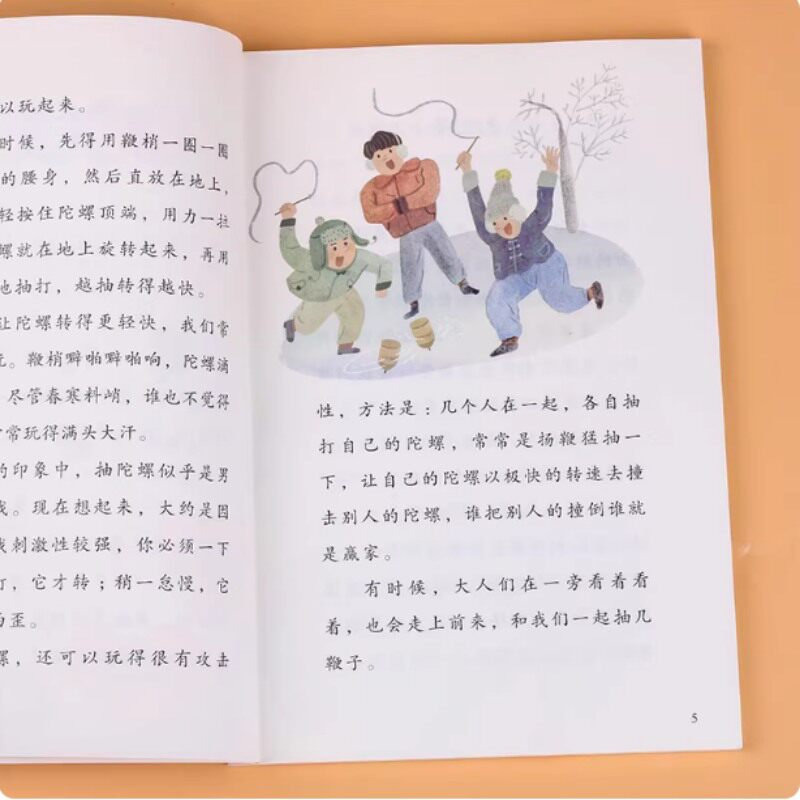 以玩起来。
时候，先得用鞭梢一圈一圈
的腰身，然后直放在地上，
轻按住陀螺顶端，用力一拉
螺就在地上旋转起来，再用
地抽打，越抽转得越快。
让陀螺转得更轻快，我们常
玩。鞭梢噼啪噼啪响，陀螺滴
尽管春寒料峭，谁也不觉得
常玩得满头大汗。
的印象中，抽陀螺似乎是男
戏。现在想起来，大约是因
戏刺激性较强，你必须一下
打，它才转；稍一怠慢，它
而歪。
螺，还可以玩得很有攻击
性，方法是：几个人在一起，各自抽
打自己的陀螺，常常是扬鞭猛抽一
下，让自己的陀螺以极快的转速去撞
击别人的陀螺，谁把别人的撞倒谁就
是赢家。
有时候，大人们在一旁看着看
着，也会走上前来，和我们一起抽几
鞭子。
5